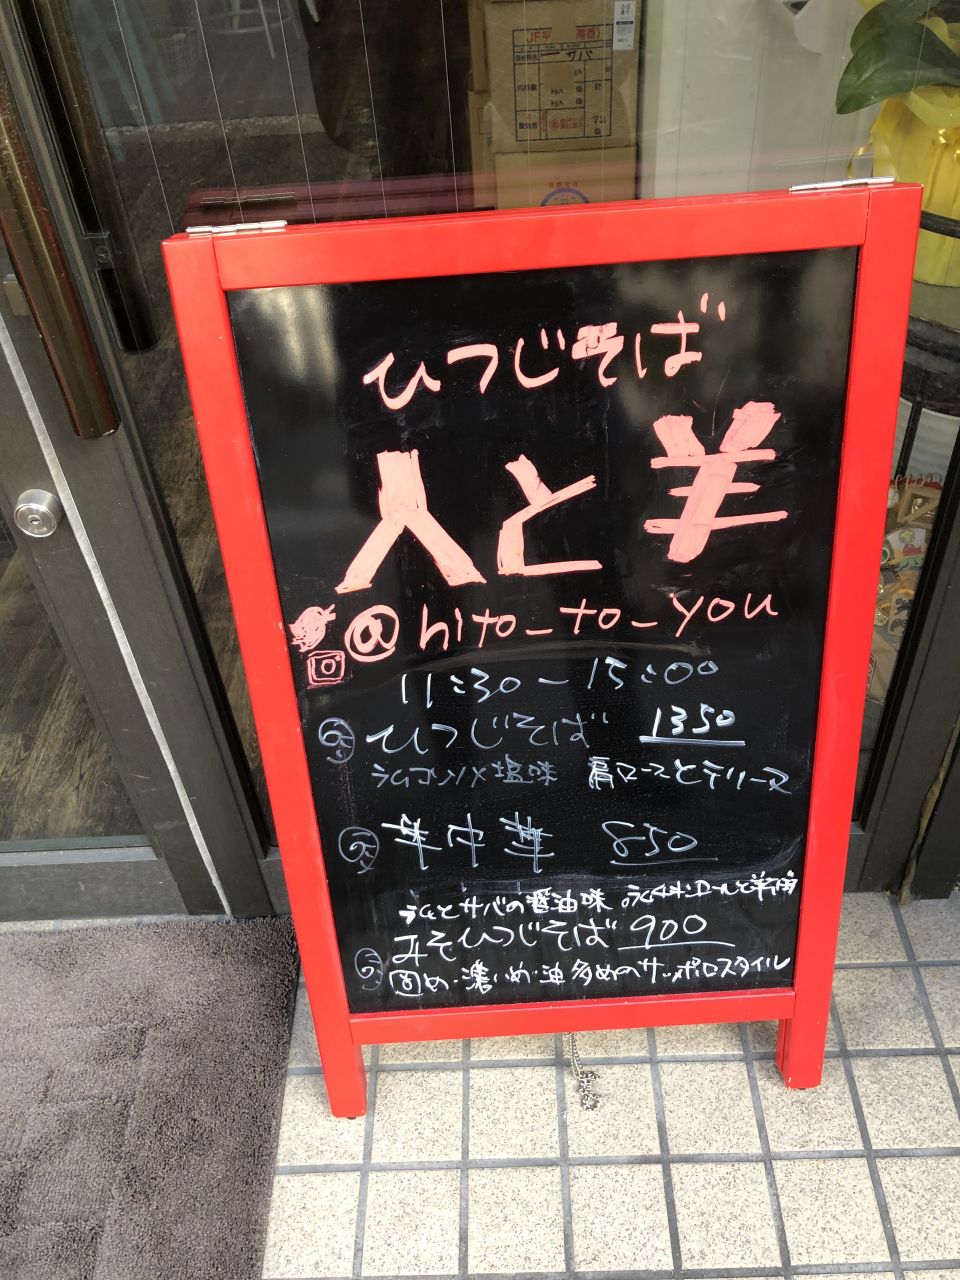 JF平
サバ
ひつじそば
人と羊
@hito_to_you
11:30-15:00
ひつじそば 1350
ラムコンソメ塩味 肩ロースとテリーヌ
羊中華 850
ラムとサバの醤油味
みそひつじそば 900
固め・濃いめ・油多めのサッポロスタイル